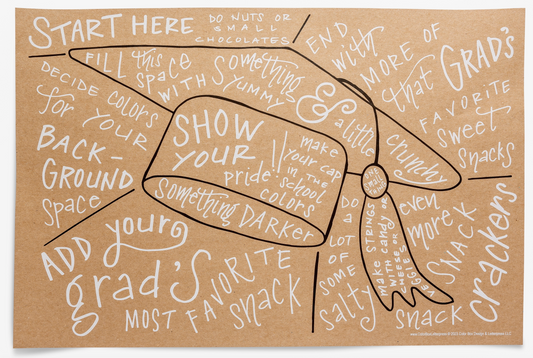 START HERE
DO NUTS OR
SMALL
CHOCOLATES
END
with
MORE OF
that GRAD'S
FAVORITE
sweet
snacks
FILL this
space
WITH
Something
YUMMY
&
a little
crunchy
DECIDE COLORS
for YOUR
BACK-
GROUND
space
SHOW
YOUR
pride!!
make
your cap
IN THE
school
colors
Something DARKER
ONE
SMALL
ADD your
grad's
MOST FAVORITE
snack
DO A
LOT
OF
SOME
salty
STRINGS
make candy OR
WITH
CHEESE OR
VEGGIES
even
more
SNACK
crackers
snack